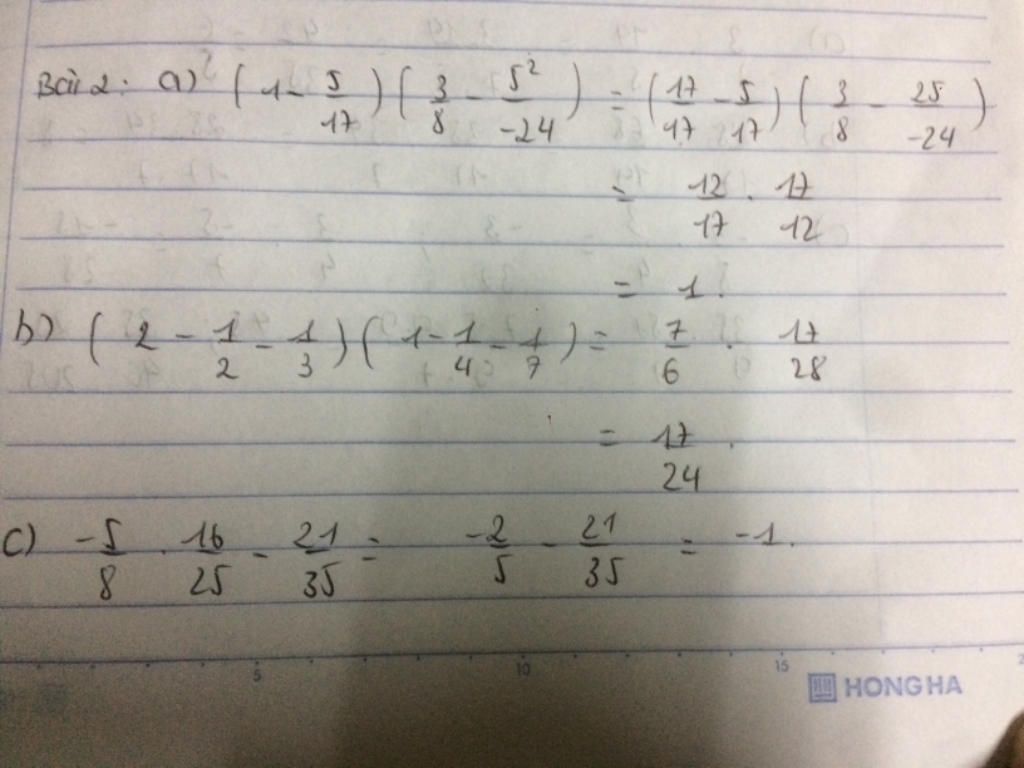 Bài 2: a) (1 - 5/17)(3/8 - 5²/-24) = (17/17 - 5/17)(3/8 - 25/-24)
= 12/17 . 17/12
= 1.
b) (2 - 1/2 - 1/3)(1 - 1/4 - 1/7) = 7/6 . 17/28
= 17/24.
c) -5/8 . 16/25 - 21/35 = -2/5 - 21/35 = -1.
5 10 15 2
HONG HA